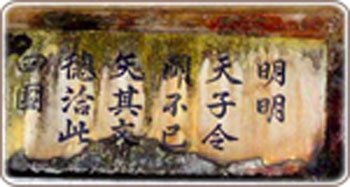 明明
天子令
聞不已
矢其文
德洽此
四國